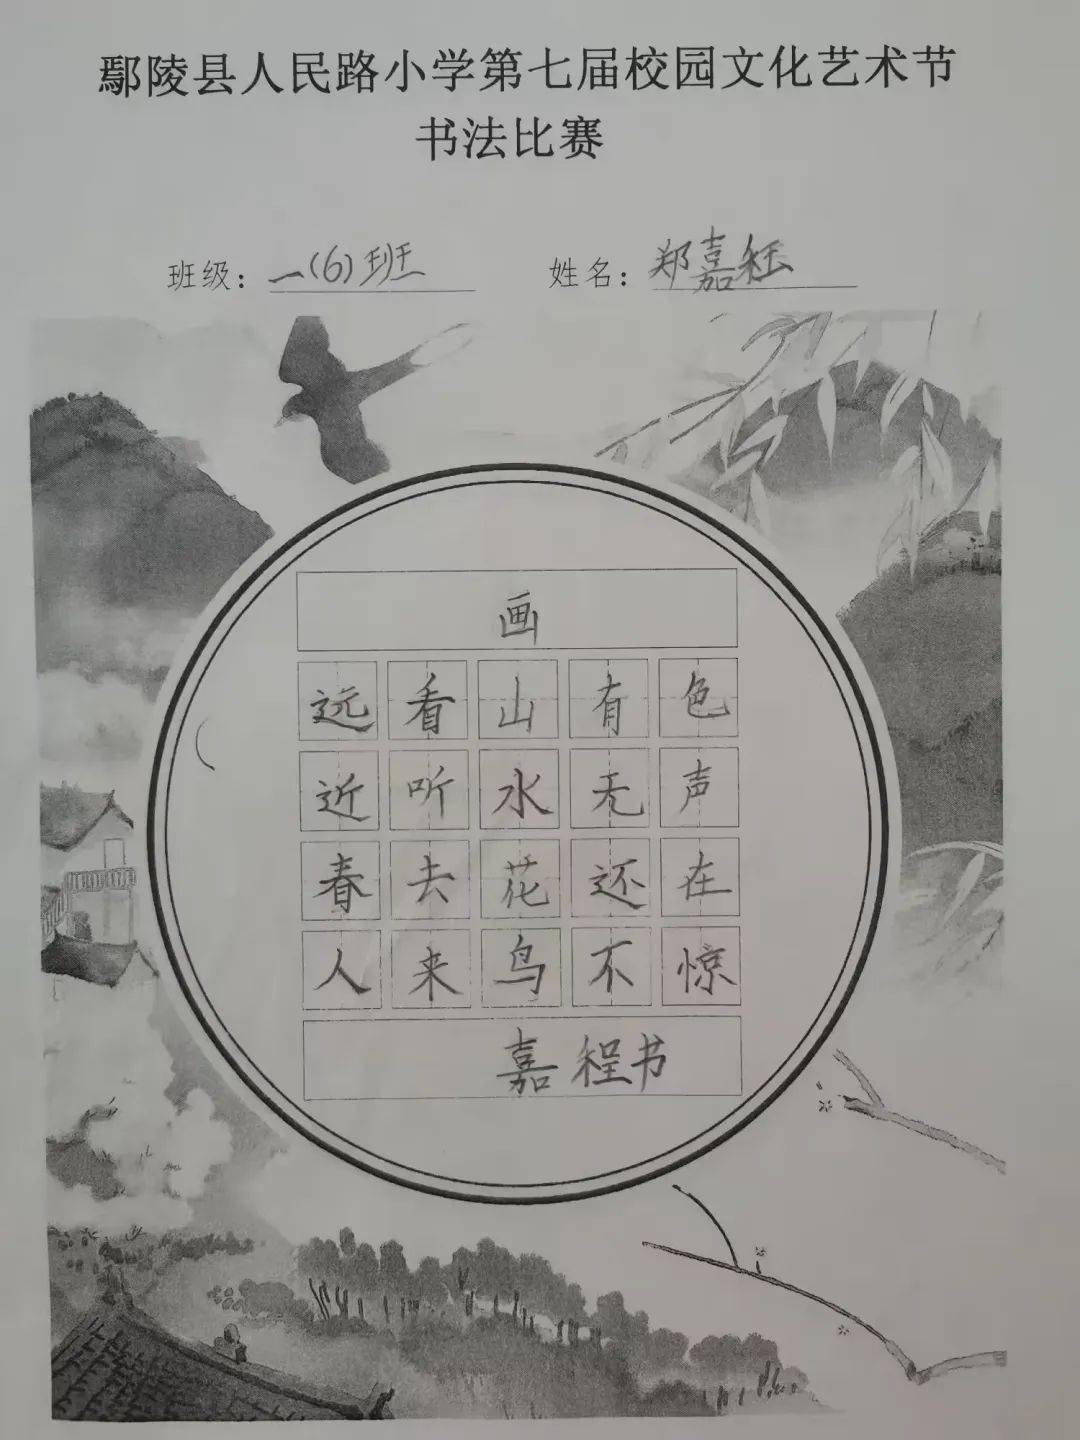 鄢陵县人民路小学第七届校园文化艺术节
书法比赛
班级：一(6)班 姓名：郑嘉程
画
远看山有色
近听水无声
春去花还在
人来鸟不惊
嘉程书